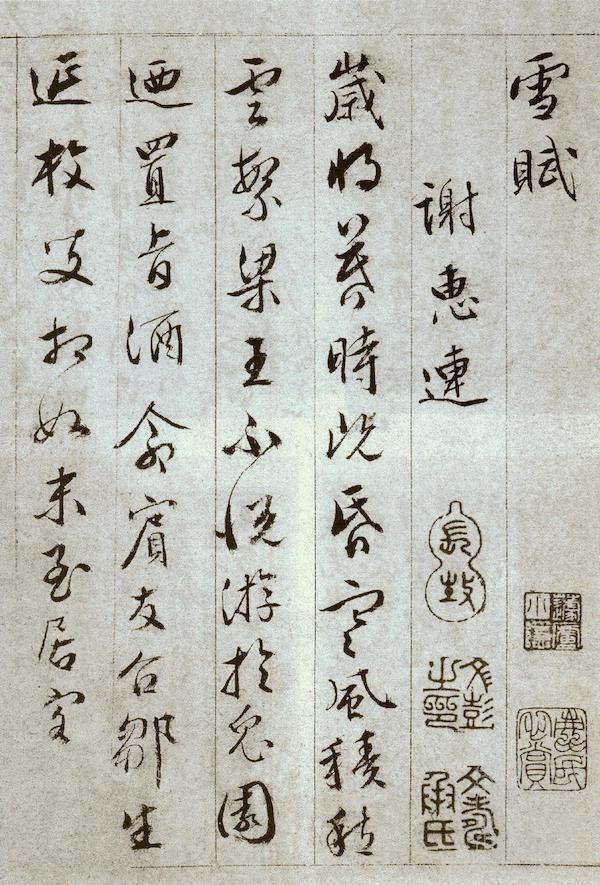 雪賦
謝惠連
歲将暮時既昏寒風積愁
雲繁梁王不悦游於兔園
迺置旨酒命賓友召鄒生
延枚叟相如末至居客
文彭之印
文壽承氏